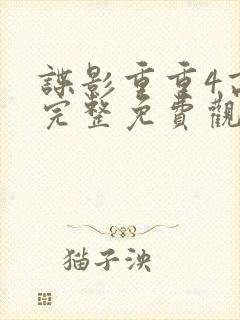 諜影重重4高
完整免費觀
猫子泱